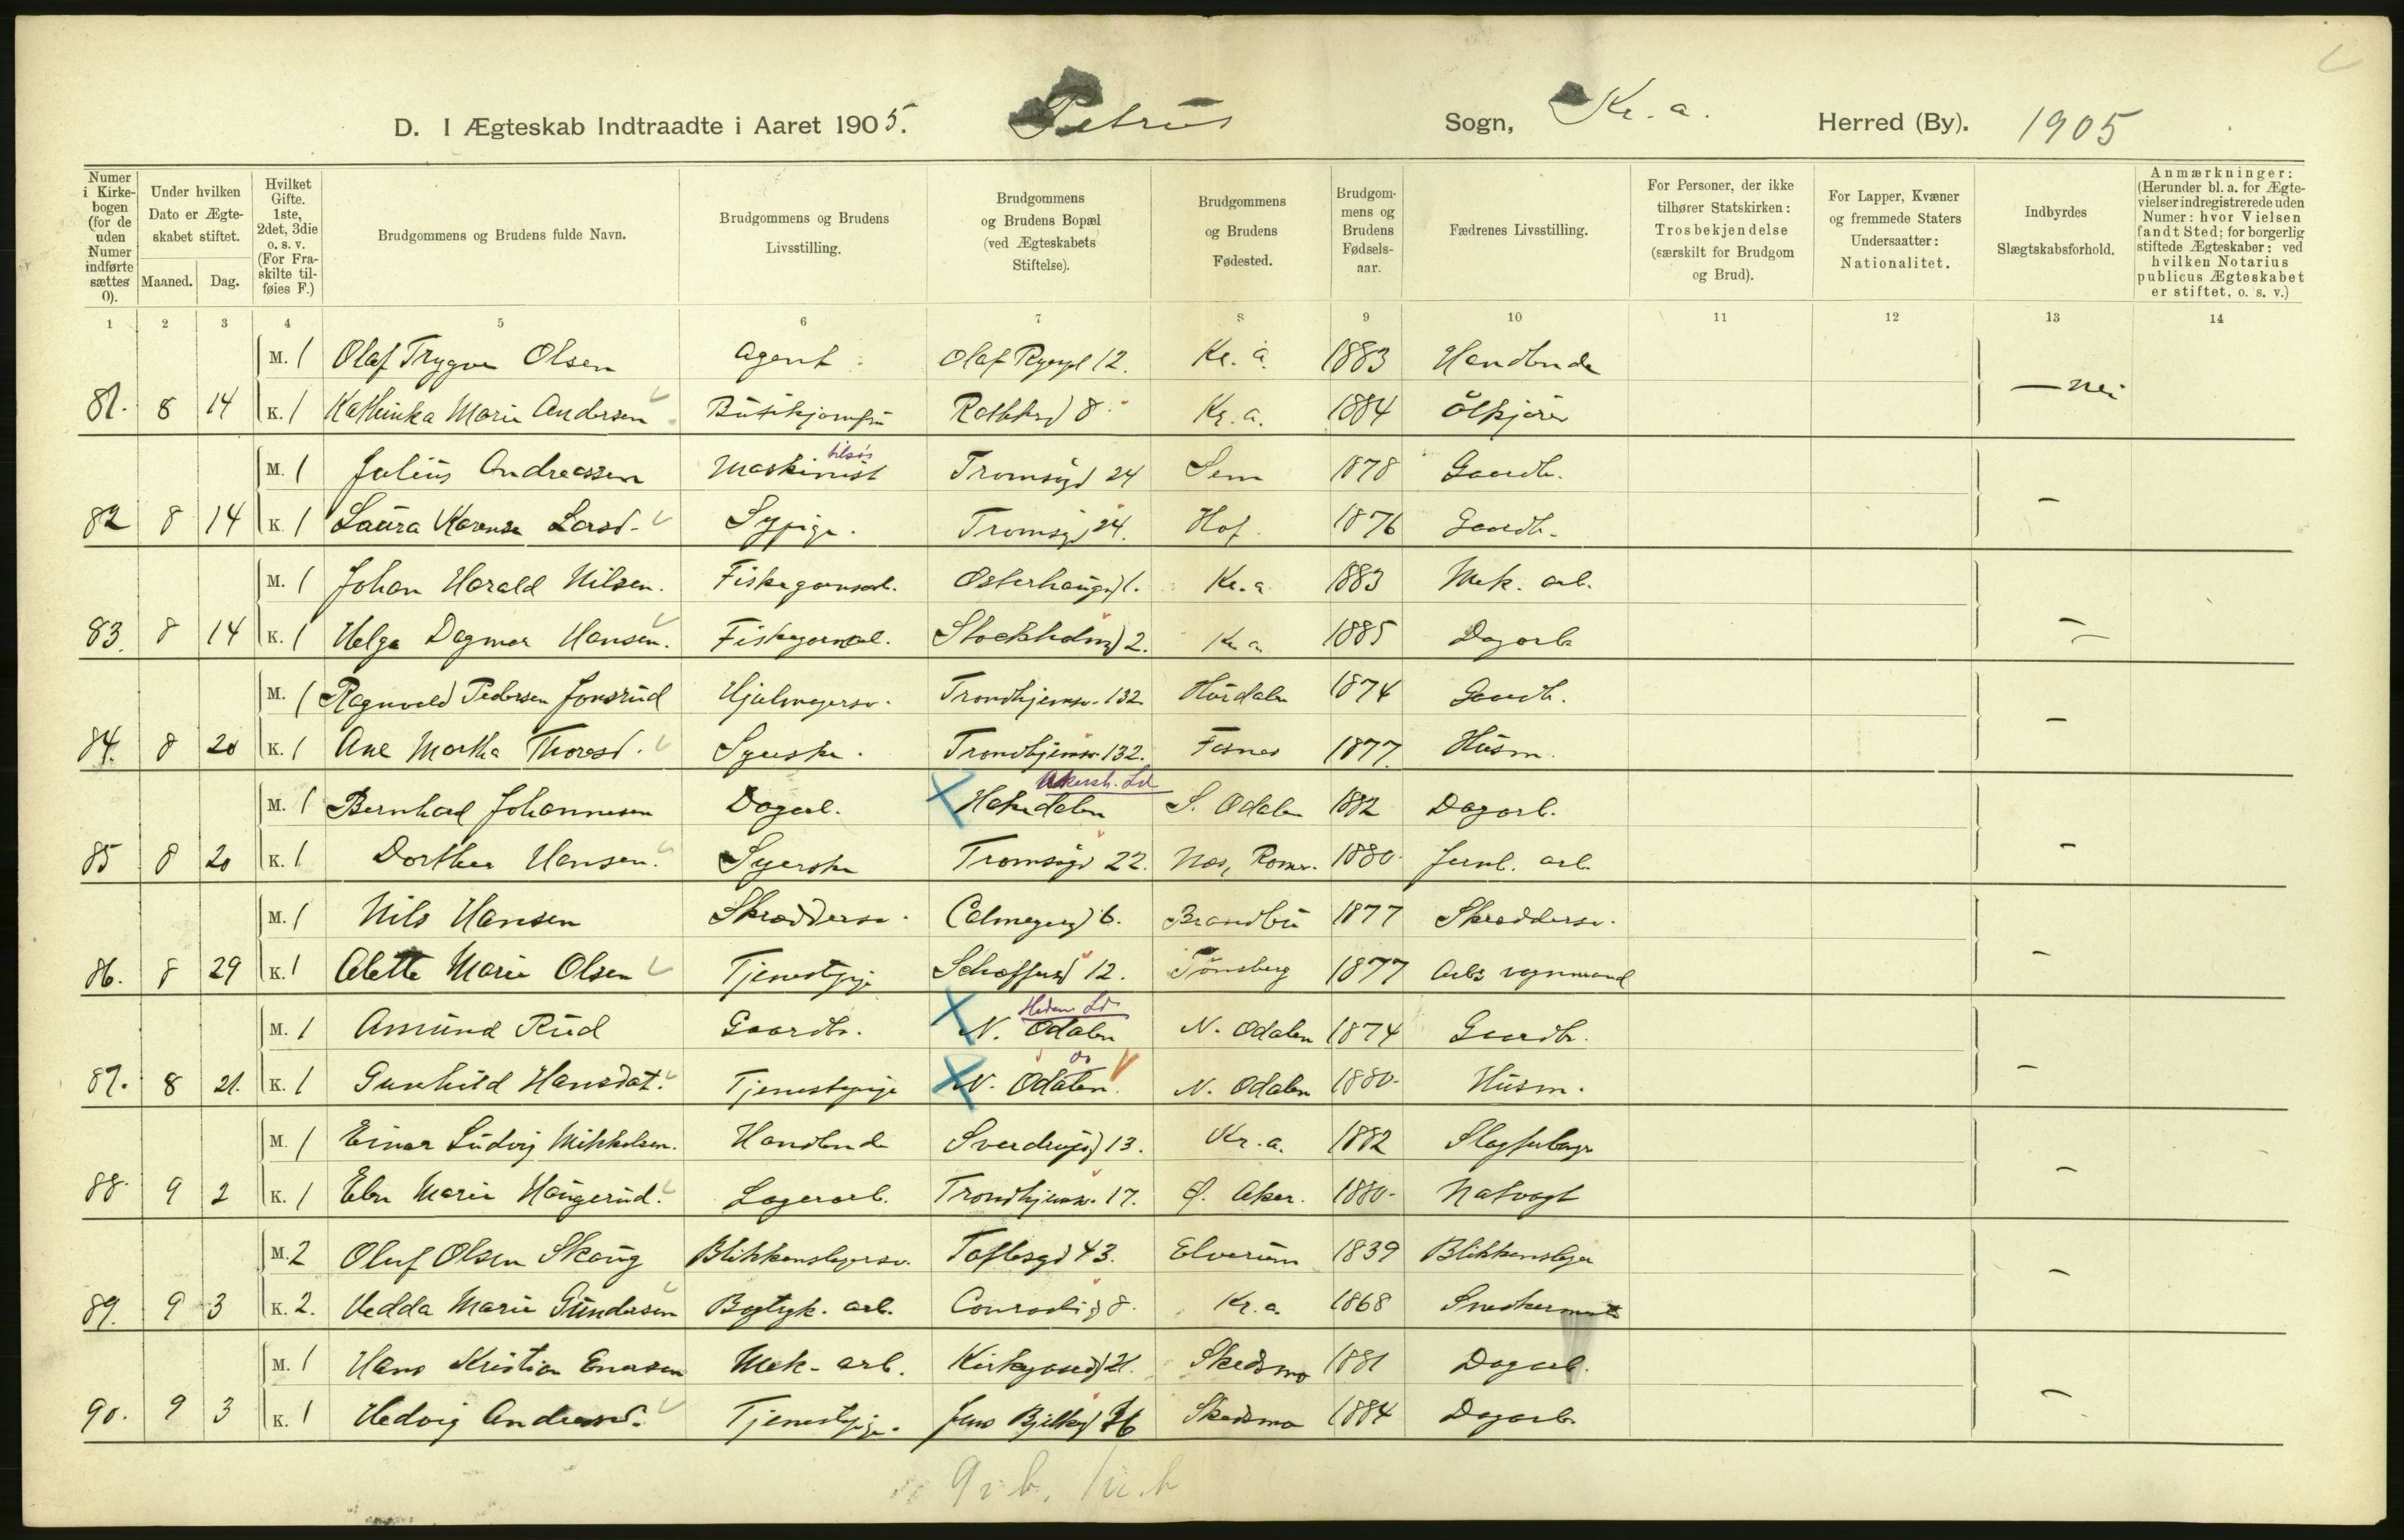 D. I Ægteskab Indtraadte i Aaret 1905. Petrus Sogn, Kr. a. Herred (By). 1905
Numer i Kirkebogen (for de uden Numer indførte sættes 0).
Under hvilken Dato er Ægteskabet stiftet.
Maaned. Dag.
Hvilket Gifte. 1ste, 2det, 3die o. s. v. (For Fraskilte tilføies F.)
Brudgommens og Brudens fulde Navn.
Brudgommens og Brudens Livsstilling.
Brudgommens og Brudens Bopæl (ved Ægteskabets Stiftelse).
Brudgommens og Brudens Fødested.
Brudgommens og Brudens Fødselsaar.
Fædrenes Livsstilling.
For Personer, der ikke tilhører Statskirken: Trosbekjendelse (særskilt for Brudgom og Brud).
For Lapper, Kvæner og fremmede Staters Undersaatter: Nationalitet.
Indbyrdes Slægtskabsforhold.
Anmærkninger: (Herunder bl. a. for Ægtevielser indregistrerede uden Numer: hvor Vielsen fandt Sted; for borgerlig stiftede Ægteskaber: ved hvilken Notarius publicus Ægteskabet er stiftet, o. s. v.)
1 2 3 4 5 6 7 8 9 10 11 12 13 14
M. 1 Olaf Trygve Olsen Agent Olaf Ryespl 12. Kr. a. 1883 Handlende
81. 8 14 K. 1 Kathinka Marie Andersen Butikjomfru 8 Kr. a. 1884 Ølkjører — nei
tilsøs
M. 1 Julius Andreassen Maskinist Tromsøgd 24 Sem 1878 Gaardb.
82 8 14 K. 1 Laura Karense Larsd. Sypige. Tromsøgd 24. Hof 1876 Gaardb. —
M. 1 Johan Harald Nilsen. Fiskegarnarb. Osterhausgd 1. Kr. a 1883 Mek. arb.
83. 8 14 K. 1 Helga Dagmar Hansen. Fiskegarnarb. Stockholmgd 2. Kr. a 1885 Dagarb —
M. 1 Ragnvald Pedersen Jonsrud Hjulmagersv. Trondhjemsv. 132 Hurdalen 1874 Gaardb.
84. 8 20 K. 1 Ane Martha Thoresd. Syerske. Trondhjemsv. 132. Fosnes 1877 Husm. —
Akersh. Ld
M. 1 Bernhard Johannesen Dagarb. Hakedalen S. Odalen 1882 Dagarb.
85 8 20 K. 1 Dorthea Hansen. Syerske Tromsøgd 22. Nes, Romr. 1880 Jernb. arb. —
M. 1 Nils Hansen Skræddersv. Calmeyergd 6. Brandbu 1877 Skræddersv.
86. 8 29 K. 1 Alette Marie Olsen Tjenestpige Schæffersgd 12. Tønsberg 1877 Arb. vognmand —
Hedem. Ld
M. 1 Amund Rud Gaardbr. N. Odalen N. Odalen 1874 Gaardbr.
do
87. 8 21. K. 1 Gunhild Hansdat. Tjenestepige N. Odalen. N. Odalen 1880 Husm. —
M. 1 Einar Ludvig Mikkelsen. Handlende Sverdrupsgd 13. Kr. a. 1882
88 9 2 K. 1 Elen Marie Haugerud. Lagerarb. Trondhjemsv. 17. Ø. Aker. 1880 Natvagt —
M. 2 Oluf Olsen Skaug Blikkenslagersv. Toftesgd 43. Elverum 1839 Blikkenslager
89. 9 3 K. 2. Hedda Marie Gundersen Bogtryk. arb. Conradisgd 8. Kr. a. 1868 Snedkermest —
M. 1 Hans Kristian Enersen Mek. arb. Kirkegaardsgd 21. Skedsmo 1881 Dagarb.
90. 9 3 K. 1 Hedvig Andersd. Tjenestpige. Jens Bjelkesgd 36 Skedsmo 1884 Dagarb —